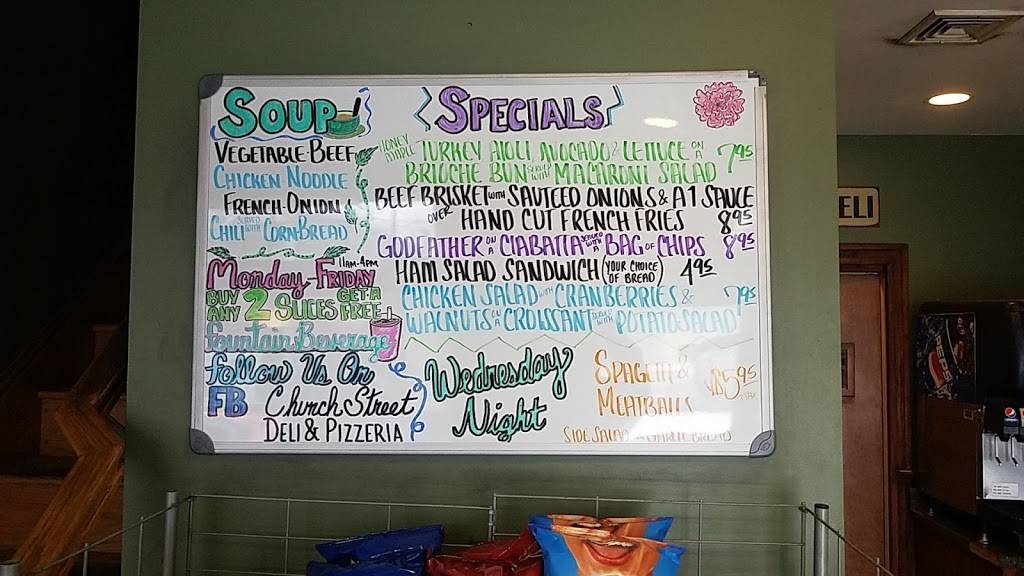 SOUP
VEGETABLE-BEEF
CHICKEN NOODLE
FRENCH ONION
CHILI SERVED WITH CORNBREAD
11AM-4PM
MONDAY-FRIDAY
BUY ANY 2 SLICES GET A FREE
fountain Beverage
follow Us On
FB Church Street
DELI & PIZZERIA
SPECIALS
HONEY MAPLE TURKEY AIOLI, AVOCADO & LETTUCE ON A 7.95
BRIOCHE BUN SERVED WITH MACARONI SALAD
BEEF BRISKET WITH SAUTEED ONIONS & A1 SAUCE
OVER HAND CUT FRENCH FRIES 8.95
GODFATHER ON A CIABATTA SERVED WITH A BAG OF CHIPS 8.95
HAM SALAD SANDWICH (YOUR CHOICE OF BREAD) 4.95
CHICKEN SALAD WITH CRANBERRIES & 7.95
WALNUTS ON A CROISSANT SERVED WITH POTATO SALAD
Wednesday
Night
SPAGETTI &
MEATBALLS
$5.95
+TAX
SIDE SALAD & GARLIC BREAD
ELI
PEPSI